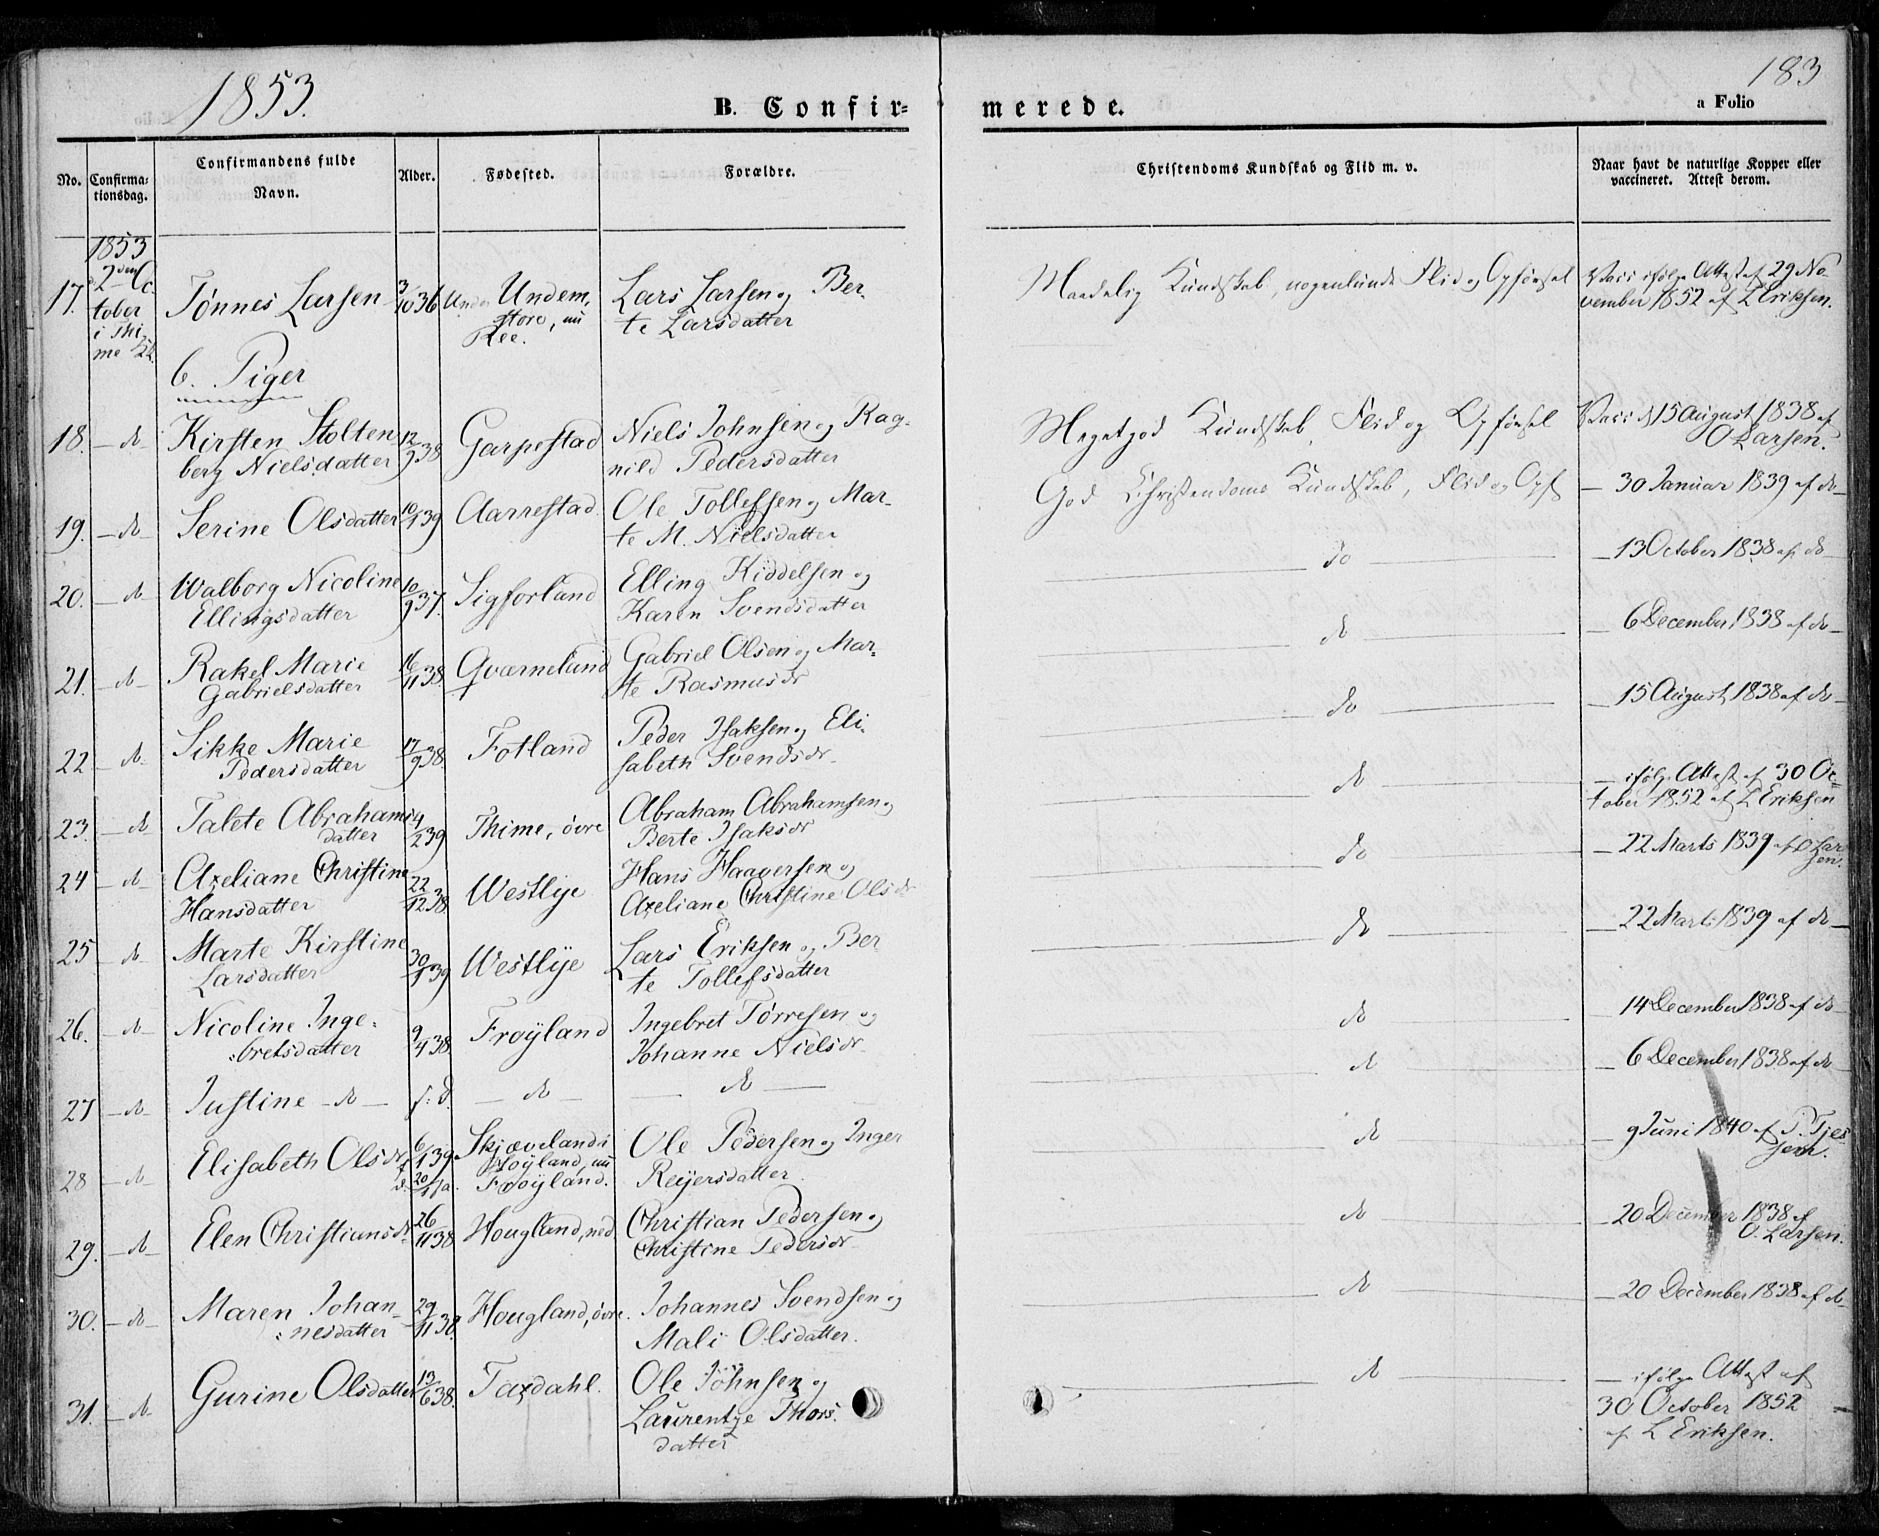 1853.
183
B. Confir=
merede.
a Folio
No.
Confirma=
tionsdag.
Confirmandens fulde
Navn.
Alder.
Fødested.
Forældre.
Christendoms Kundskab og Flid m. v.
Naar havt de naturlige Kopper eller
vaccineret. Attest derom.
1853
17. 2den Oc
tober
i Thi
me
Tønnes Larsen 3/10 36 Undem,
store, nu
Ree.
Lars Larsen og Ber-
te Larsdatter
Maadelig Kundskab, nogenlunde Flid og Opførsel
Vacc ifølge Attest af 29 No-
vember 1852 af L Eriksen.
b. Piger
18. do Kirsten Stolten
berg Nielsdatter 12/9 38 Garpestad
Niels Johnsen og Rag-
nild Pedersdatter
Megetgod Kundskab, Flid og Opførsel
Vacc d 15 August 1838 af
O Larsen.
19. do Serine Olsdatter 10/1 39 Aarrestad.
Ole Tollefsen og Mar-
te M. Nielsdatter
God Christendoms Kundskab, Flid og Opf
30 Januar 1839 af do
20. do Walborg Nicoline
Ellingsdatter 10/9 37. Sigforland
Elling Kiddelsen og
Karen Svendsdatter
do
13 October 1838 af do
21. do Rakel Marie
Gabrielsdatter 16/11 38. Qvarnelund
Gabriel Olsen og Mar-
te Rasmusdr
do
6 December 1838 af do
22 do Sikke Marie
Pedersdatter 17/9 38. Fotland
Peder Isaksen og Eli-
sabeth Svendsdr.
do
15 August 1838 af do
23. do Talete Abrahams
datter 14/2 39 Thime, øvre
Abraham Abrahamsen og
Berte Isaksdr
do
ifølge Attest af 30 Oc-
tober 1852 af L Eriksen
24 do Axeliane Christine
Hansdatter 22/12 38. Westlye
Hans Haaversen og
Axeliane Christine Olsdr
do
22 Marts 1839 af O Lar
sen.
25 do Marte Kirstine
Larsdatter 30/1 39 Westlye
Lars Eriksen og Ber
te Tollefsdatter
do
22 Marts 1839 af do
26. do Nicoline Inge=
=bretsdatter 9/4 38. Frøyland
Ingebret Tørresen og
Johanne Nielsdr
do
14 December 1838 af do
27 do Justine do s: d. do do
do
6 December 1838 af do
28 do Elisabeth Olsdr 6/1 39. Skjævelandi
Høyland, nu
Frøyland.
Ole Pedersen og Inger
Reyersdatter
do
9 Juni 1840 af P. Tjes
sem.
29. do Elen Christiansdr 26/11 38 Hougland, ned
Christian Pedersen og
Christine Pedersdr
do
20 December 1838 af
O. Larsen.
30. do Maren Johan-
=nesdatter 29/11 38. Hougland, øvre.
Johannes Svendsen og
Mali Olsdatter.
do
20 December 1838 af do
31. do Gurine Olsdatter 13/6 38. Taxdahl.
Ole Johnsen og
Laurentze Thors.
datter
do
ifølge Attest af
30 October 1852
af L Eriksen.